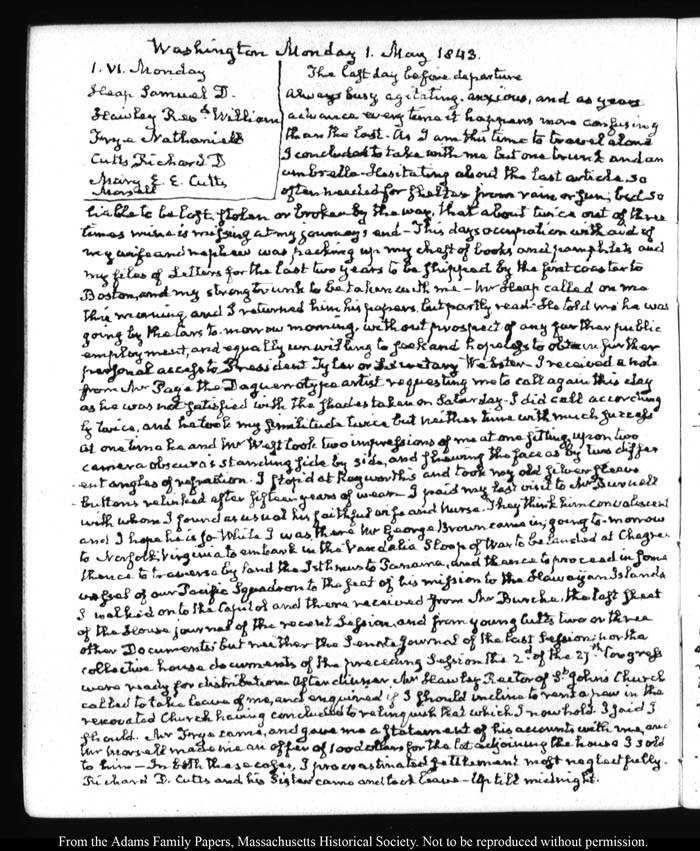 Washington Monday 1. May 1843.
1. VI. Monday
Heap Samuel D.
Hawley Rev.d William
Frye Nathaniel
Cutts Richard D
Mary E. E. Cutts
Morsell
The last day before departure
always busy agitating, anxious, and as years
advance every time it happens more confusing
than the last. As I am this time to travel alone
I concluded to take with me but one trunk and an
umbrella—Hesitating about the last article, so
often needed for shelter from rain or sun; but so
liable to be lost, stolen or broken by the way, that about twice out of three
times mine is missing at my journey's end—This days occupation with aid of
my wife and nephew was packing up my chest of books and pamphlets and
my files of Letters for the last two years to be shipped by the first coaster to
Boston, and my strong trunk to be taken with me—Mr Heap called on me
this morning, and I returned him his papers, but partly read—He told me he was
going by the Cars to-morrow morning, without prospect of any further public
employment, and equally unwilling to seek and hopeless to obtain further
personal access to President Tyler or Secretary Webster—I received a note
from Mr Page the Daguerrotype artist requesting me to call again this day
as he was not satisfied with the shades taken on Saturday—I did call according
ly twice, and he took my similitude twice but neither time with much success
At one time he and Mr West took two impressions of me at one sitting, upon two
camera obscura's standing side by side, and shewing the face as by two differ
-ent angles of refraction. I stop'd at Hayworth's and took my old silver sleeve
buttons relinked after fifteen years of wear. I paid my last visit to Mr Burnell
with whom I found as usual his faithful wife and nurse. They think him convalescent
and I hope he is so—While I was there Mr George Brown came in; going to-morrow
to Norfolk, Virginia to embark in the Vandalia Sloop of War to be landed at Chagres
thence to traverse by land the Isthmus to Panama, and thence to proceed in some
vessel of our Pacific Squadron to the seat of his mission to the Hawaiian Islands
I walked on to the Capitol and there received from Mr Burche, the last sheet
of the House journal of the recent Session, and from young Cutts two or three
other Documents; but neither the Senate Journal of the last Session; nor the
collective house documents of the preceding Session the 2.d of the 27th Congress
were ready for distribution. After dinner Mr Hawley Rector of St John's Church
called to take leave of me, and enquired if I should incline to rent a pew in the
renovated Church having concluded to relinquish that which I now hold. I said I
should. Mr Frye came, and gave me a statement of his accounts with me, and
Mr Morsell made me an offer of 100 dollars for the lot adjoining the house I sold
to him—In both these cases, I procrastinated settlement most neglectfully.
Richard D. Cutts and his Sister came and took leave—Up till midnight.
From the Adams Family Papers, Massachusetts Historical Society. Not to be reproduced without permission.